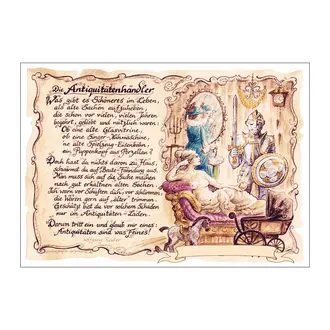 Die Antiquitätenhändler
Was gibt es Schöneres im Leben,
als alte Sachen aufzuheben,
die schon vor vielen, vielen Jahren
begehrt, geliebt und nützlich waren.
Ob eine alte Glasvitrine,
ob eine Singer-Nähmaschine,
ne alte Spielzeug-Eisenbahn,
ein Puppenkopf aus Porzellan!
Doch hast du nichts davon zu Haus,
schwärmst du auf Beute-Fahndung aus.
Man muss sich auf die Suche machen
nach gut erhaltnen alten Sachen.
Ich warn vor Schuften dich, vor schlimmen
die hören gern auf „alter" trimmen.
Geschützt bist du vor solchem Schaden
nur im Antiquitäten-Laden.
Darum tritt ein und glaub mir eines:
Antiquitäten sind was Feines!